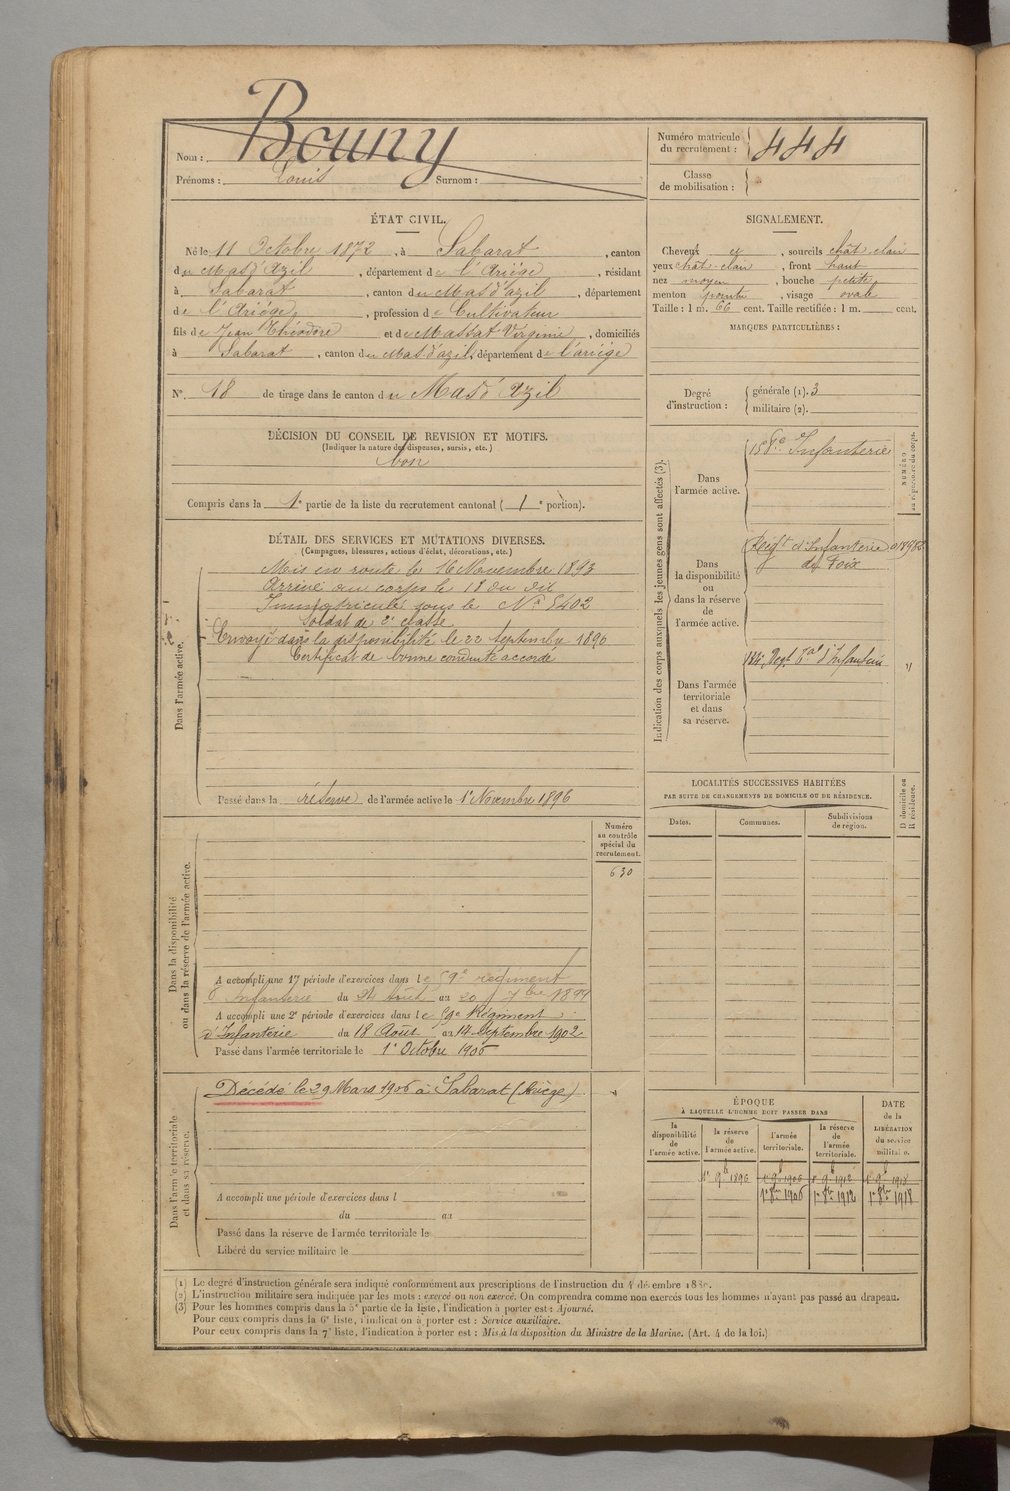 Nom : Bouny
Prénoms : Louis Surnom :
Numéro matricule du recrutement : 444
Classe de mobilisation :
ÉTAT CIVIL.
Né le 11 Octobre 1872, à Sabarat, canton
du Mas d'Azil, département de l'Ariège, résidant
à Sabarat, canton du Mas d'azil, département
de l'Ariège, profession de Cultivateur
fils de Jean Théodore et de Massat Virginie, domiciliés
à Sabarat, canton du Mas d'azil, département de l'ariège
N° 18 de tirage dans le canton du Mas d'Azil
DÉCISION DU CONSEIL DE REVISION ET MOTIFS.
(Indiquer la nature des dispenses, sursis, etc.)
bon
Compris dans la 1e partie de la liste du recrutement cantonal ( 1e portion).
DÉTAIL DES SERVICES ET MUTATIONS DIVERSES.
(Campagnes, blessures, actions d'éclat, décorations, etc.)
Dans l'armée active.
Mis en route le 16 Novembre 1893
Arrivé au corps le 18 du dit
Immatriculé sous le N° 5402
Soldat de 2e classe
Envoyé dans la disponibilité le 22 septembre 1896
Certificat de bonne conduite accordé
Passé dans la réserve de l'armée active le 1er Novembre 1896
Numéro au contrôle spécial du recrutement.
630
Dans la disponibilité ou dans la réserve de l'armée active.
A accompli une 1re période d'exercices dans le 59e regiment
d'Infanterie du 24 Août au 20 7bre 1899
A accompli une 2e période d'exercices dans le 59e Régiment
d'Infanterie du 18 Août au 14 Septembre 1902
Passé dans l'armée territoriale le 1er Octobre 1906
Dans l'armée territoriale et dans sa réserve.
Décédé le 29 Mars 1906 à Sabarat (Ariège)
A accompli une période d'exercices dans l
du au
Passé dans la réserve de l'armée territoriale le
Libéré du service militaire le
SIGNALEMENT.
Cheveux et, sourcils chât clair
yeux chât clair, front haut
nez moyen, bouche petite
menton pointu, visage ovale
Taille : 1 m. 66 cent. Taille rectifiée : 1 m. cent.
MARQUES PARTICULIÈRES :
Degré d'instruction :
générale (1). 3
militaire (2).
Indication des corps auxquels les jeunes gens sont affectés (3).
NUMÉRO au répertoire du corps.
Dans l'armée active.
158e Infanterie
Dans la disponibilité ou dans la réserve de l'armée active.
Régt d'Infanterie
de Foix
Dans l'armée territoriale et dans sa réserve.
Regt tal d'Infanterie
LOCALITÉS SUCCESSIVES HABITÉES
PAR SUITE DE CHANGEMENTS DE DOMICILE OU DE RÉSIDENCE.
Dates. Communes. Subdivisions de région. D domicile ou R résidence.
ÉPOQUE
À LAQUELLE L'HOMME DOIT PASSER DANS
DATE de la LIBÉRATION du service militaire.
la disponibilité de l'armée active. la réserve de l'armée active. l'armée territoriale. la réserve de l'armée territoriale.
1er 9b 1896 1er 9b 1906 1er 9b 1912 1er 9b 1918
1er 8bre 1906 1er 8bre 1912 1er 8bre 1918
(1) Le degré d'instruction générale sera indiqué conformément aux prescriptions de l'instruction du 4 décembre 1889.
(2) L'instruction militaire sera indiquée par les mots : exercé ou non exercé. On comprendra comme non exercés tous les hommes n'ayant pas passé au drapeau.
(3) Pour les hommes compris dans la 5e partie de la liste, l'indication à porter est : Ajourné.
Pour ceux compris dans la 6e liste, l'indication à porter est : Service auxiliaire.
Pour ceux compris dans la 7e liste, l'indication à porter est : Mis à la disposition du Ministre de la Marine. (Art. 4 de la loi.)